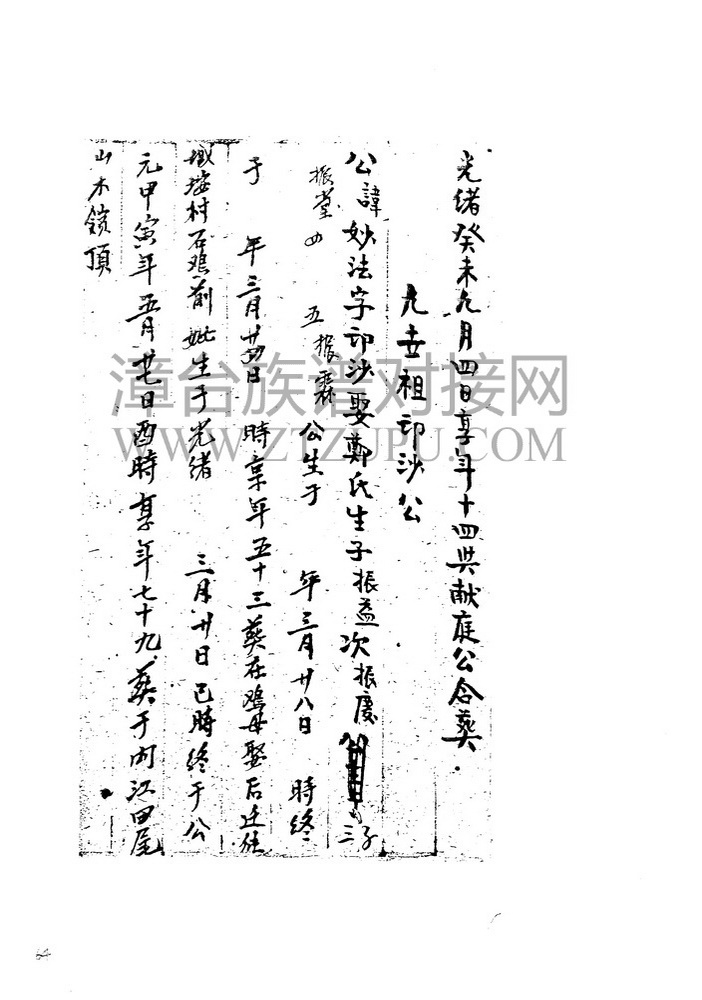 光绪癸未九月四日享年十四共献庭公合葬.
九世祖印沙公
公諱妙法字印沙娶鄭氏生子振益次振慶 三子
振堂四 五振霖 公生于 年三月廿八日 時終
于 年三月廿四日 時享年五十三葬在鸡母娶后迁
村石鸡前妣生于光绪 三月廿日巳時終于公
元甲寅年五月廿七日酉時享年七十九.葬于内江田尾
山木嶺頂
漳台族谱对接网
WWW.ZTZUPU.COM